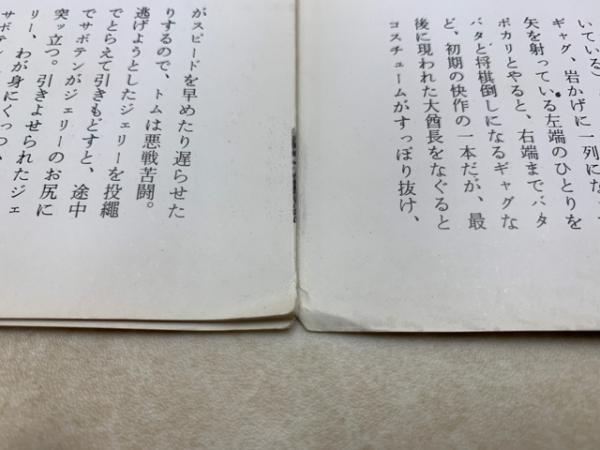 いている)
ギャグ、岩かげに一列にな
矢を射っている左端のひとりを
ポカリとやると、右端までバタ
バタと将棋倒しになるギャグな
ど、初期の快作の一本だが、最
後に現われた大酋長をなぐると
コスチュームがすっぽり抜け、
がスピードを早めたり遅らせた
りするので、トムは悪戦苦闘。
逃げようとしたジェリーを投繩
でとらえて引きもどすと、途中
でサボテンがジェリーのお尻に
突ッ立つ。引きよせられたジェ
リー、わが身にくっつい
サボテン